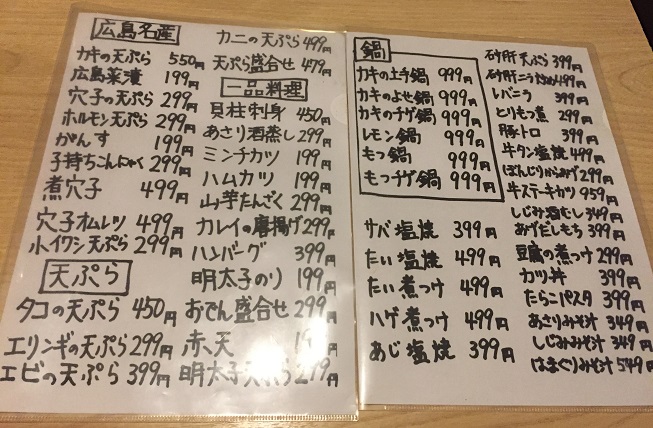 広島名産
カキの天ぷら 550円
広島菜漬 199円
穴子の天ぷら 299円
ホルモン天ぷら 299円
がんす 199円
子持ちこんにゃく 299円
煮穴子 499円
穴子オムレツ 499円
小イワシ天ぷら 299円
天ぷら
タコの天ぷら 450円
エリンギの天ぷら 299円
エビの天ぷら 399円
カニの天ぷら 499円
天ぷら盛合せ 479円
一品料理
貝柱刺身 450円
あさり酒蒸し 299円
ミンチカツ 199円
ハムカツ 199円
山芋たんざく 299円
カレイの唐揚げ 299円
ハンバーグ 399円
明太子のり 199円
おでん盛合せ 299円
赤天 円
明太子天ぷら 299円
鍋
カキの土手鍋 999円
カキのよせ鍋 999円
カキのチゲ鍋 999円
レモン鍋 999円
もつ鍋 999円
もつチゲ鍋 999円
サバ塩焼 399円
たい塩焼 499円
たい煮つけ 499円
ハゲ煮つけ 499円
あじ塩焼 399円
砂肝天ぷら 399円
砂肝ニラ炒め 499円
レバニラ 399円
とりもつ煮 299円
豚トロ 399円
牛タン塩焼 499円
ぼんじりからみづけ 299円
牛ステーキカツ 959円
しじみ酒むし 349円
あげだしもち 399円
豆腐の煮つけ 299円
カツ丼 399円
たらこパスタ 399円
あさりみそ汁 349円
しじみみそ汁 349円
はまぐりみそ汁 549円